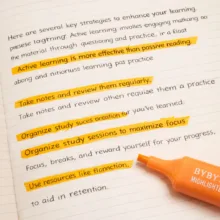 Here are several key strategies to enhance your learning.
Active learning involves engaging
the material through questioning and practice, in a
Active learning is more effective than passive reading.
along and
learning
practice
Take notes and review them regularly.
Take notes and review other
them a practice
Organize study
you've learned:
Organize study sessions to maximize focus
Focus, breaks, and reward yourself for your progress.
Use resources like
to aid in retention.
BYBY
HIGHLIGHTER